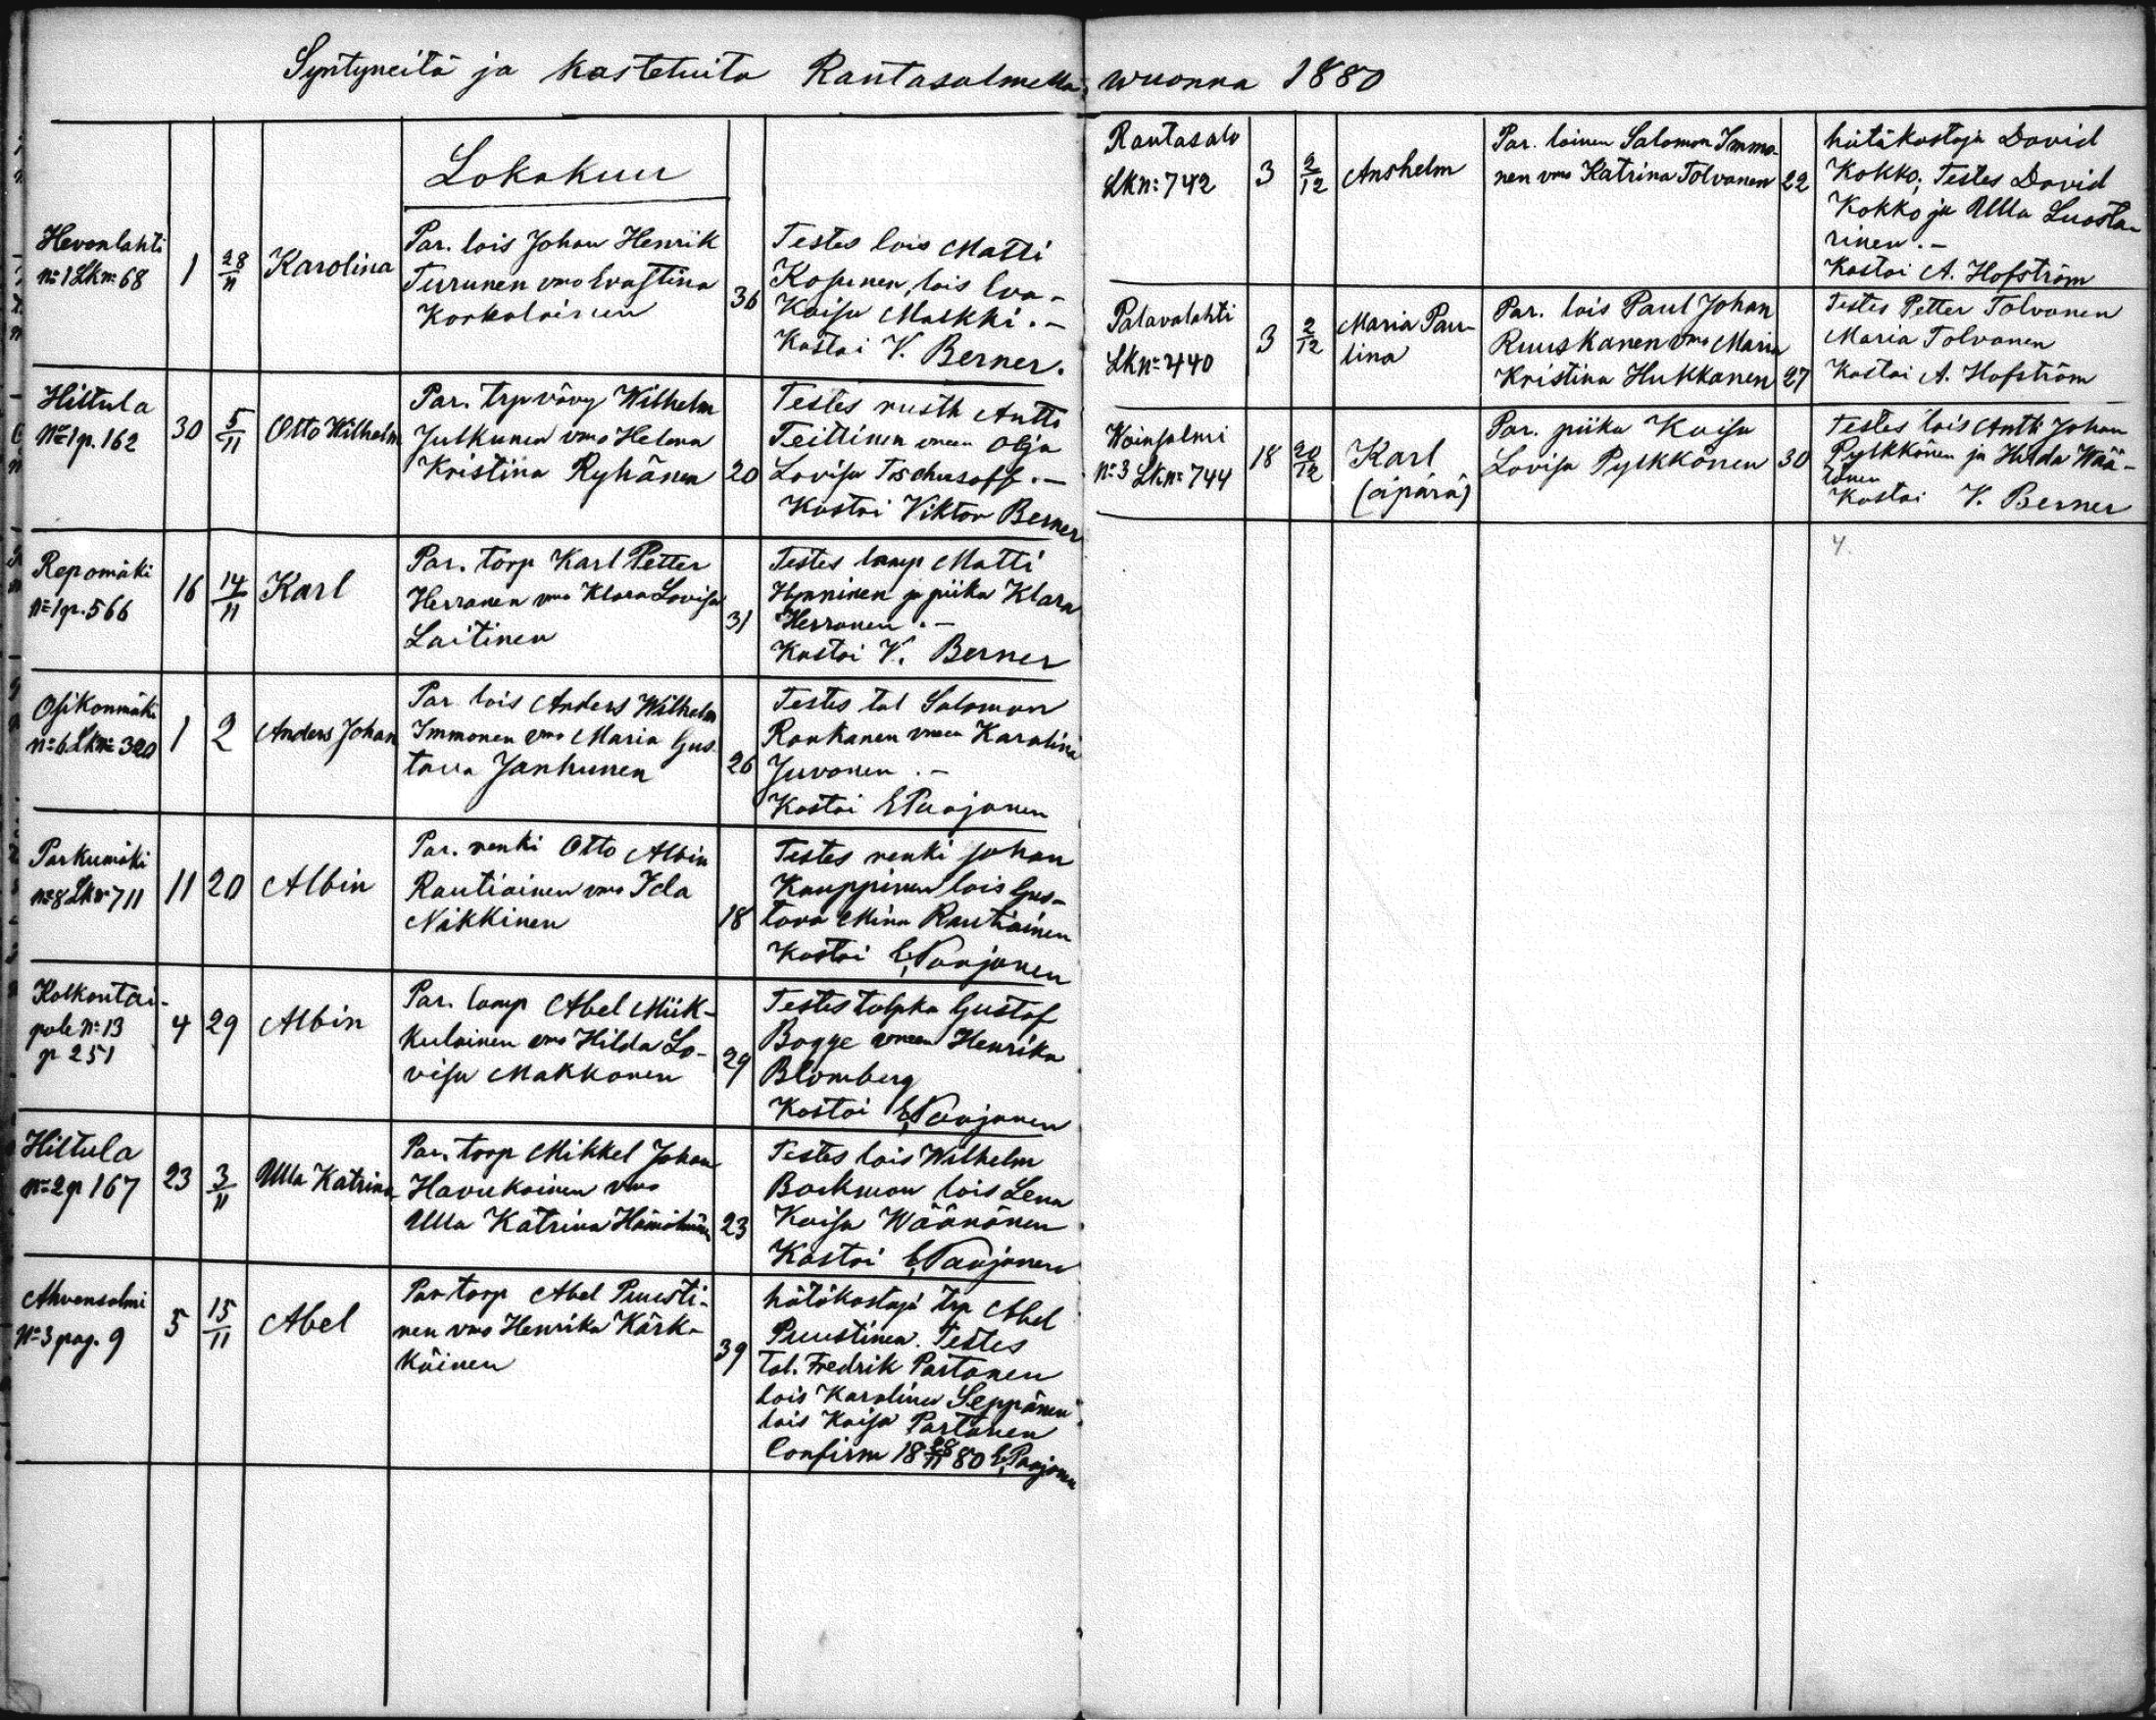 Syntyneitä ja kastetuita Rantasalmella, wuonna 1880
Lokakuu
Hevonlahti
No 1 Lkno 68
1
28/11
Karolina
Par. lois Johan Henrik
Turunen vmo Evastina
Korkalainen
36
Testes lois Matti
Kosunen, lois Eva-
Kaisa Malkki.-
Kastoi V. Berner.
Hiltula
No 1 p. 162
30
5/11
Otto Wilhelm
Par. trp vävy Wilhelm
Julkunen vmo Helena
Kristina Ryhänen
20
Testes rusth Antti
Teittinen Olja
Lovisa Tischusoff.-
Kastoi Viktor Berner
Repomäki
No 1 p. 566
16
14/11
Karl
Par. torp Karl Petter
Herranen vmo Klara Lovisa
Laitinen
31
Testes lamp Matti
Hynninen ja piika Klara
Herranen.-
Kastoi V. Berner
Osikonmäki
No 6 Lkno 320
1
2
Anders Johan
Par lois Anders Wilhelm
Immonen vmo Maria Gus
tava Janhunen
26
Testes tal Salomon
Raukanen vmeen Karolina
Juvonen.-
Kastoi E Paajanen
Parkumäki
No 8 Lkno 711
11
20
Albin
Par. renki Otto Albin
Rautiainen vmo Ida
Nikkinen
18
Testes renki Johan
Kauppinen lois Gus-
tava Mina Rautiainen
Kastoi E Paajanen
Kolkontai-
pale No 13
p 251
4
29
Albin
Par. lamp Abel Miik-
kulainen vmo Hilda Lo-
visa Makkonen
29
Testes Gustaf
Bogge vmeen Henrika
Blomberg
Kastoi E Paajanen
Hiltula
No 2 p 167
23
3/11
Ulla Katrina
Par. torp Mikkel Johan
Havukainen vmo
Ulla Katrina Hämäläinen
23
Testes lois Wilhelm
Backman lois Lena
Kaisa Wäänänen
Kastoi E Paajanen
Ahvensalmi
No 3 pag. 9
5
15/11
Abel
Par torp Abel Puusti-
nen vmo Henrika Kärk-
käinen
39
hätäkastaja trp Abel
Puustinen. Testes
Tal. Fredrik Partanen
lois Karolina Seppänen
lois Kaisa Partanen
Confirm 18 28/11 80 E Paajanen
Rantasalo
Lkno: 742
3
2/12
Anshelm
Par. loinen Salomon Immo-
nen vmo Katrina Tolvanen
22
hätäkastaja David
Kokko; Testes David
Kokko ja Ulla Luosta-
rinen.-
Kastoi A. Hofström
Palavalahti
Lkno 440
3
2/12
Maria Pau-
lina
Par. lois Paul Johan
Ruuskanen vmo Maria
Kristina Hukkanen
27
Testes Petter Tolvanen
Maria Tolvanen
Kastoi A. Hofström
Woinsalmi
No: 3 Lkno 744
18
20/12
Karl
(äpärä)
Par. piika Kaisa
Lovisa Pylkkönen
30
Testes lois Antti Johan
Pylkkönen ja Hilda Wää-
tänen
Kastoi V. Berner